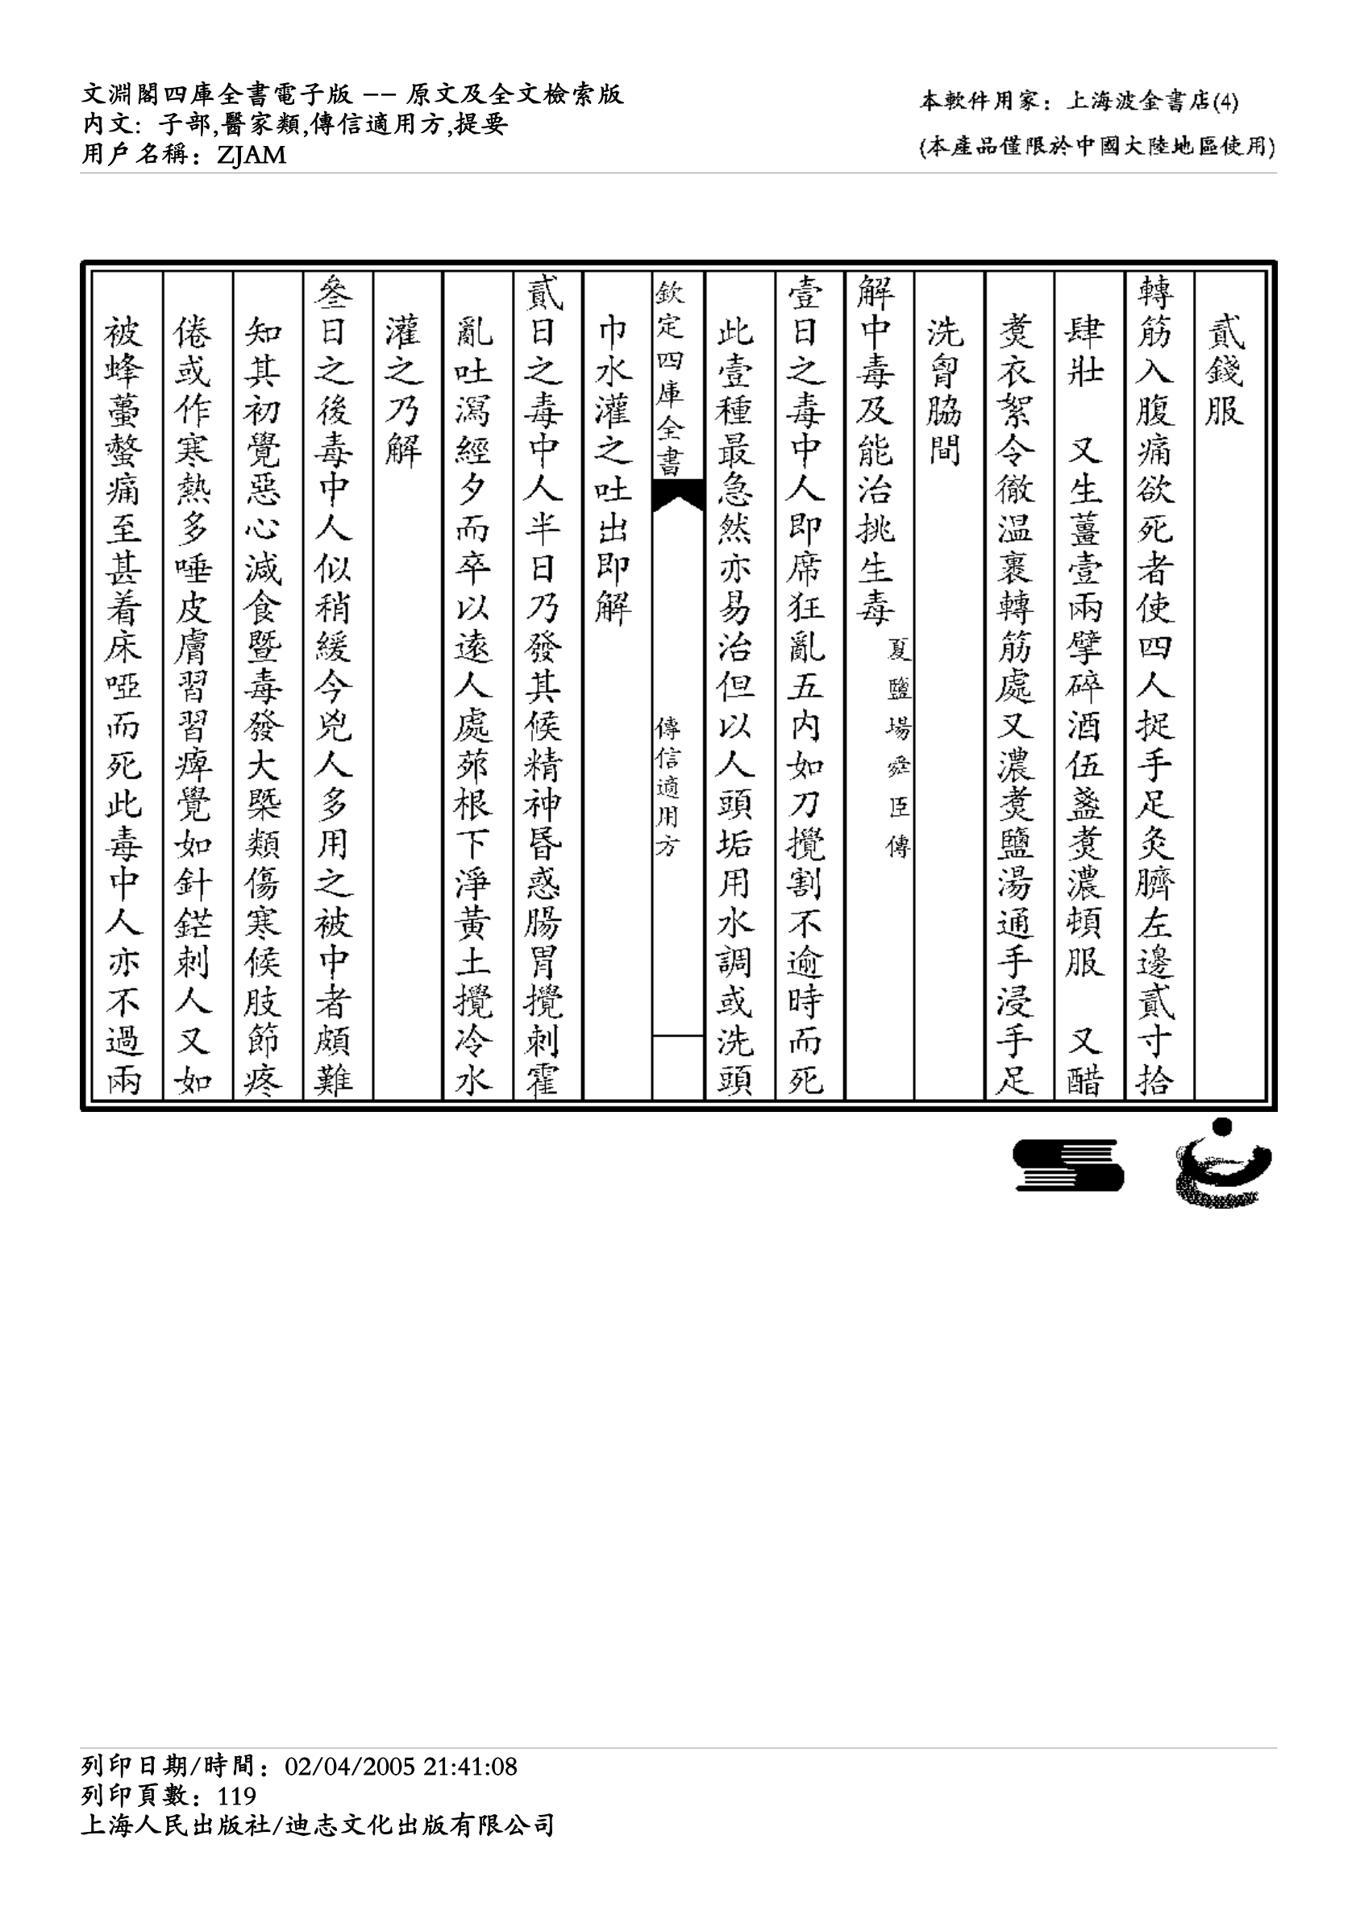 文淵閣四庫全書電子版 -- 原文及全文檢索版
内文: 子部,醫家類,傳信適用方,提要
用戶名稱: ZJAM
本軟件用家: 上海波金書店(4)
(本產品僅限於中國大陸地區使用)
貳錢服
轉筋入腹痛欲死者使四人捉手足灸臍左邊貳寸拾
肆壯 又生薑壹兩擘碎酒伍盞煑濃頓服 又醋
煑衣絮令徹温裹轉筋處又濃煑鹽湯通手浸手足
洗胷脇間
解中毒及能治挑生毒 夏鹽場舜臣傳
壹日之毒中人即席狂亂五内如刀攪割不逾時而死
此壹種最急然亦易治但以人頭垢用水調或洗頭
欽定四庫全書 傳信適用方
巾水灌之吐出即解
貳日之毒中人半日乃發其候精神昬惑腸胃攪刺霍
亂吐瀉經夕而卒以逺人處茆根下淨黃土攪冷水
灌之乃解
叄日之後毒中人似稍緩今兇人多用之被中者頗難
知其初覺惡心減食暨毒發大槩類傷寒候肢節疼
倦或作寒熱多唾皮膚習習痺覺如針鋩刺人又如
被蜂蠆螫痛至甚着床啞而死此毒中人亦不過兩
列印日期/時間: 02/04/2005 21:41:08
列印頁數: 119
上海人民出版社/迪志文化出版有限公司